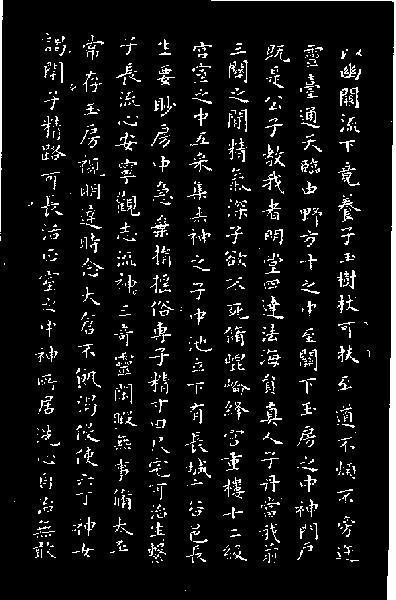 以幽關流下竟養子玉樹杖可扶至道不煩不旁迕
靈臺通天臨中野方寸之中至關下玉房之中神門戶
既是公子教我者明堂四達法海負真人子丹當我前
三關之間精氣深子欲不死脩崐崘絳宮重樓十二級
宮室之中五采集赤神之子中池立下有長城玄谷邑長
生要眇房中急棄捐搖俗專子精寸田尺宅可治生繫
子長流心安寧觀志流神三奇靈閑暇無事脩太平
常存玉房視明達時念大倉不飢渴役使六丁神女
謁閉子精路可長活正室之中神所居洗心自治無敢